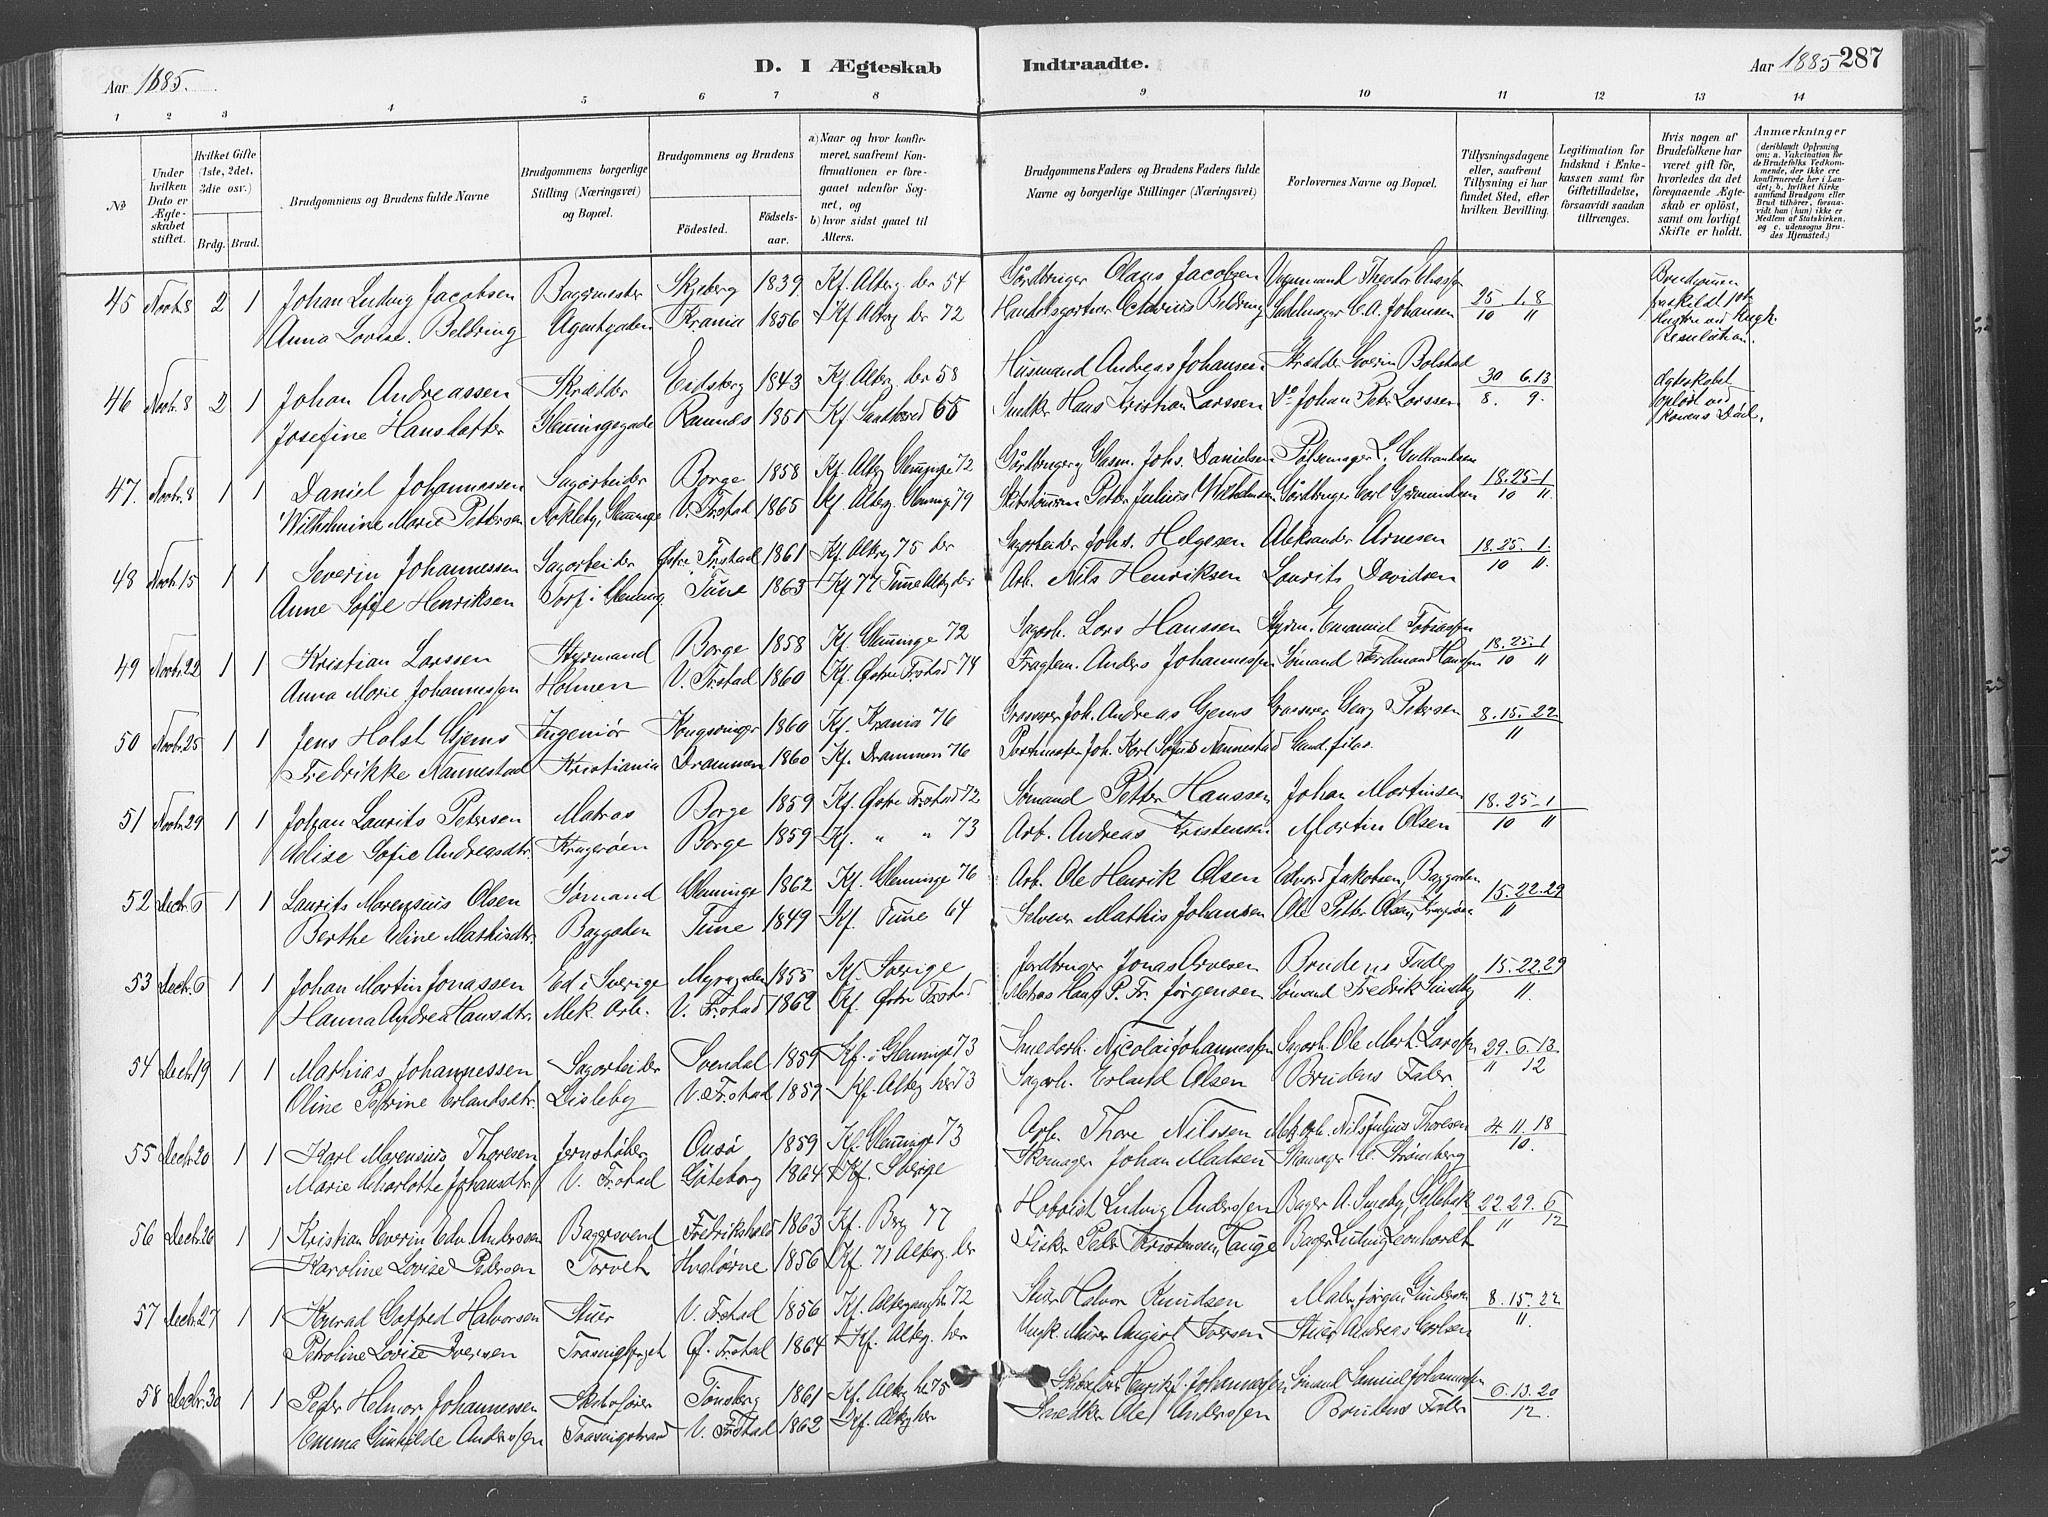 Aar 1885.
D. I Ægteskab Indtraadte.
Aar 1885 287
1 2 3 4 5 6 7 8 9 10 11 12 13 14
No
Under hvilken Dato er Ægteskabet stiftet.
Hvilket Gifte (1ste, 2det, 3die osv.)
Brdg. Brud.
Brudgommens og Brudens fulde Navne
Brudgommens borgerlige Stilling (Næringsvei) og Bopæl.
Brudgommens og Brudens
Fødested. Fødselsaar.
a) Naar og hvor konfirmeret, saafremt Konfirmationen er foregaaet udenfor Sognet, og
b) hvor sidst gaaet til Alters.
Brudgommens Faders og Brudens Faders fulde Navne og borgerlige Stillinger (Næringsvei)
Forlovernes Navne og Bopæl.
Tillysningsdagene eller, saafremt Tillysning ei har fundet Sted, efter hvilken Bevilling.
Legitimation for Indskud i Enkekassen samt for Giftetilladelse, forsaavidt saadan tiltrænges.
Hvis nogen af Brudefolkene har været gift før, hvorledes da det foregaaende Ægteskab er opløst, samt om lovligt Skifte er holdt.
Anmærkninger (deriblandt Oplysning om: a. Vakcination for de Brudefolks Vedkommende, der ikke ere konfirmerede her i Landet; b. hvilket Kirkesamfund Brudgom eller Brud tilhører, forsaavidt han (hun) ikke er Medlem af Statskirken, og c. udensogns Brudes Hjemsted.)
45 Novbr. 8 2 1 Johan Ludvig Jacobsen Bagermester Skjeberg 1839 Kf. Alterg. her 54 Gårdbruger Olaus Jacobsen Theodor 25. 1. 8 Brudgommen
Anna Lovise Beldring Agentgaden Krania 1856 Kf. Alterg her 72 Handelsgartner Beldring C. A. Johansen 10 11 Hustru ved Kngl. Resolution.
46 Novbr. 8 2 1 Johan Andreassen Skrædder Eidsberg 1843 Kf. Alterg. her 58 Husmand Andreas Johansen Skrædder Severin Bolstad 30 6. 13 Ægteskabet
Josefine Hansdatter Glemmingegade 1851 Kf. 65 Snedker Hans Kristian Larssen Do Johan Petr Larssen 8. 9. opløst ved Konens Død.
47. Novbr. 8 1 1 Daniel Johannessen Sagarbeider Borge 1858 Kf. Alterg Glemminge 72 Gårdbruger Johs. Danielsen Pølsemager L. 18. 25. 1
Wilhelmine Marie Pettersen Glemminge V. Fr.stad 1865 Kf. Alterg. Glemminge 79 Petter Julius Wilhelmsen Gårdbruger Carl 10 11.
48 Novbr. 15 1 1 Severin Johannessen Sagarbeider Østre Fr.stad 1861 Kf. Alterg 75 her Sagarbeider Johs. Helgesen Aleksander Arnesen 18. 25. 1.
Anne Sofie Henriksen Torp i Glemming Tune 1863 Kf 77 Tune Alterg her Arb. Nils Henriksen Laurits Davidsen 10 11.
49 Novbr. 22 1 1 Kristian Larssen Styrmand Borge 1858 Kf. Glemminge 72 Sagarb. Lars Hanssen Styrm. Emanuel Tobiassen 18. 25. 1
Anna Marie Johannessen Holmen V. Fr.stad 1860 Kf. Østre Fr.stad 74 Fragtem. Anders Johannessen Sømand Ferdinand Hanssen 10 11
50 Novbr. 25 1 1 Jens Holst Gjems Ingeniør Kongsvinger 1860 Kf. Krania 76 Joh. Andreas Gjems Georg Petersen 8. 15. 22
Fredrikke Nannestad Kristiania Drammen 1860 Kf. Drammen 76 Postmester Joh. Karl Sofus Nannestad 11
51 Novbr. 29 1 1 Johan Laurits Petersen Matros Borge 1859 Kf. Østre Fr.stad 72 Sømand Petter Hanssen Johan Martinsen 18. 25. 1
Elise Sofie Andreasdtr. Kragerøen Borge 1859 Kf. " " 73 Arb. Andreas Kristensen Martin Olsen 10 11
52 Decbr. 6 1 1 Laurits Marensius Olsen Sømand Glemminge 1862 Kf. Glemminge 76 Arb. Ole Henrik Olsen Edvard Jakobsen, Baggaden 15. 22. 29
Berthe Eline Mathisdtr. Baggaden Tune 1849 Kf. Tune 64 Selveier Mathis Johansen Ole Petter Olsen, Kragerøen 11
53 Decbr. 6 1 1 Johan Martin Jonassen Ed i Sverige Myrgaden 1855 Kf. Sverige Jordbruger Jonas Arvesen Brudens Fader 15. 22. 29
Hanna Andrea Hansdtr. Mek. Arb. V. Fr.stad 1862 Kf. Østre Fr.stad Matros Hans P. Fr. Jørgensen Sømand Fredrik 11.
54 Decbr. 19 1 1 Mathias Johannessen Sagarbeider Svendal 1859 Kf. i Glemminge 73 Smedarb. Nicolai Johannessen Sagarb. Ole Mart. Larssen 29. 6. 13.
Oline Petrine Erlandsdtr. Lisleby V. Fr.stad 1859 Kf. Alterg her 73 Sagarb. Erland Olsen Brudens Fader. 11 12
55 Decbr. 20 1 1 Karl Marensius Thoresen Jernstøber Onsø 1859 Kf. Glemminge 73 Arb. Thore Nilssen Mek. Arb. Nils Julius Thoresen 4. 11. 18
Marie Charlotte Johansdtr. V. Fr.stad Göteborg 1864 Kf. Sverige Skomager Johan Madsen Skomager C. Strømberg 10.
56 Decbr. 26 1 1 Kristian Severin Edv. Anderssen Bagersvend Fredrikshald 1863 Kf. Berg 77 Ludvig Anderssen Bager A. Smeby, Sellebak 22. 29. 6
Karoline Lovise Petersen Torvet Hvaløerne 1856 Kf. 71 Alterg. her Fisker Peder Kristensen, Tange Bager Ludvig Leonhardt 11 12
57 Decbr. 27 1 1 Konrad Gotfred Halvorsen Stuer V. Fr.stad 1856 Kf. Altergang her 72 Stuer Halvor Knudsen Maler Jørgen Gundersen 8. 15. 22
Petroline Lovise Iversen V. Fr.stad 1864 Kf. Alterg. her Murer August Iversen Stuer Andreas Carlsen 11.
58 Decbr. 30 1 1 Peder Helmer Johannessen Skibsfører Tønsberg 1861 Kf. Alterg her 75 Skibsfører Henrik J. Johannessen Sømand Samuel Johannessen 6. 13. 20
Emma Gunhilde Anderssen V. Fr.stad 1862 Kf. Alterg her Snedker Ole Anderssen Brudens Fader 12.